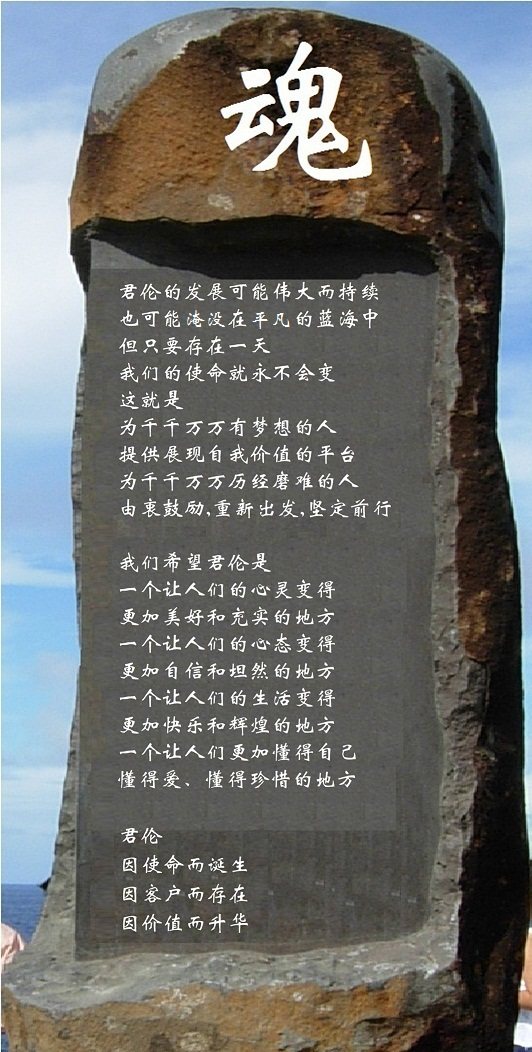 魂
君伦的发展可能伟大而持续
也可能淹没在平凡的蓝海中
但只要存在一天
我们的使命就永不会变
这就是
为千千万万有梦想的人
提供展现自我价值的平台
为千千万万历经磨难的人
由衷鼓励,重新出发,坚定前行
我们希望君伦是
一个让人们的心灵变得
更加美好和充实的地方
一个让人们的心态变得
更加自信和坦然的地方
一个让人们的生活变得
更加快乐和辉煌的地方
一个让人们更加懂得自己
懂得爱、懂得珍惜的地方
君伦
因使命而诞生
因客户而存在
因价值而升华